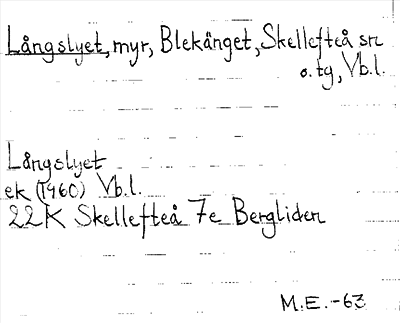 Långslyet, myr, Blekänget, Skellefteå sn
o. tg, Vb.l.
Långslyet
ek (1960) Vb.l.
22K Skellefteå 7e Bergliden
M.E. -63